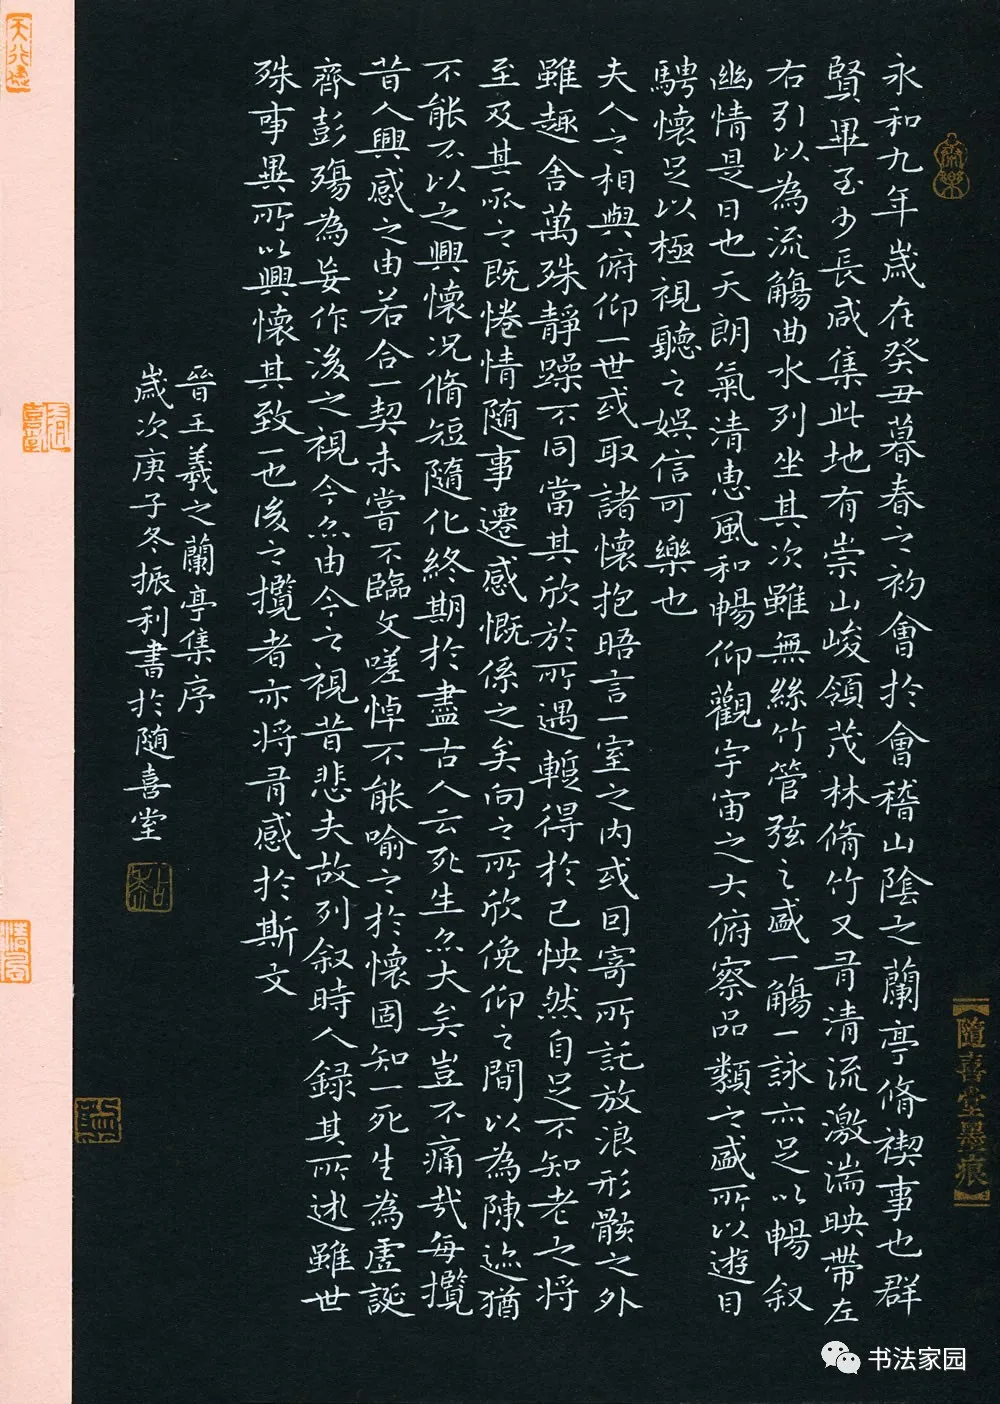 永和九年歲在癸丑暮春之初會於會稽山陰之蘭亭脩禊事也群
賢畢至少長咸集此地有崇山峻領茂林脩竹又有清流激湍映帶左
右引以為流觴曲水列坐其次雖無絲竹管弦之盛一觴一詠亦足以暢叙
幽情是日也天朗氣清惠風和暢仰觀宇宙之大俯察品類之盛所以遊目
騁懷足以極視聽之娛信可樂也
夫人之相與俯仰一世或取諸懷抱晤言一室之內或因寄所託放浪形骸之外
雖趣舍萬殊靜躁不同當其欣於所遇暫得於己怏然自足不知老之將
至及其所之既惓情隨事遷感慨係之矣向之所欣俛仰之間以為陳迹猶
不能不以之興懷况脩短隨化終期於盡古人云死生亦大矣豈不痛哉每攬
昔人興感之由若合一契未嘗不臨文嗟悼不能喻之於懷固知一死生為虛誕
齊彭殤為妄作後之視今亦由今之視昔悲夫故列叙時人錄其所述雖世
殊事異所以興懷其致一也後之攬者亦將有感於斯文
晉王羲之蘭亭集序
歲次庚子冬振利書於隨喜堂
【隨喜堂墨痕】
书法家园